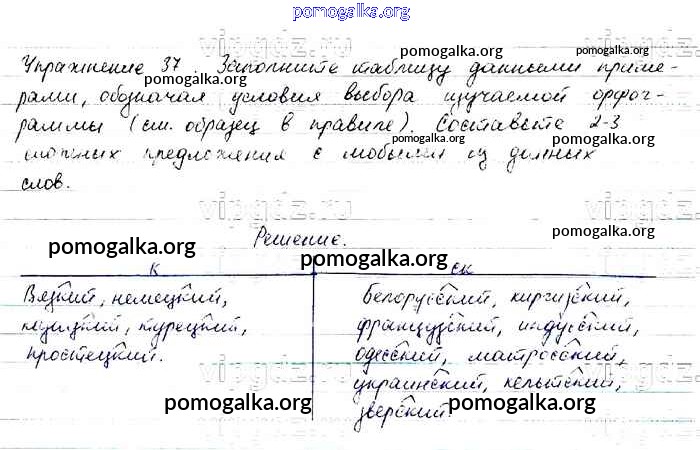 pomogalka.org
Упражнение 37. Заполните таблицу данными приме-
pomogalka.org
рами, обозначая условия выбора изучаемой орфог-
раммы (см. образец в правиле). Составьте 2-3
pomogalka.org
сложных предложения с любыми из данных
слов.
vipgdz.ru
Решение.
pomogalka.org
pomogalka.org
к
ск
Вязкий, немецкий,
белорусский, киргизский,
турецкий,
французский, индусский,
простецкий.
одесский, матросский,
украинский, кельтский,
зверский.
pomogalka.org
pomogalka.org